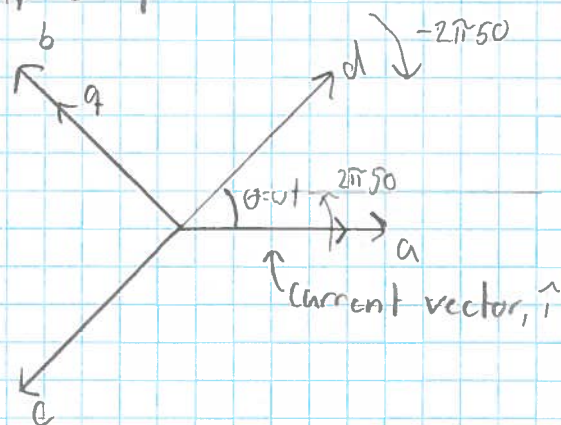 b
-2π50
d
q
θ=ωt
2π50
a
current vector, i
c